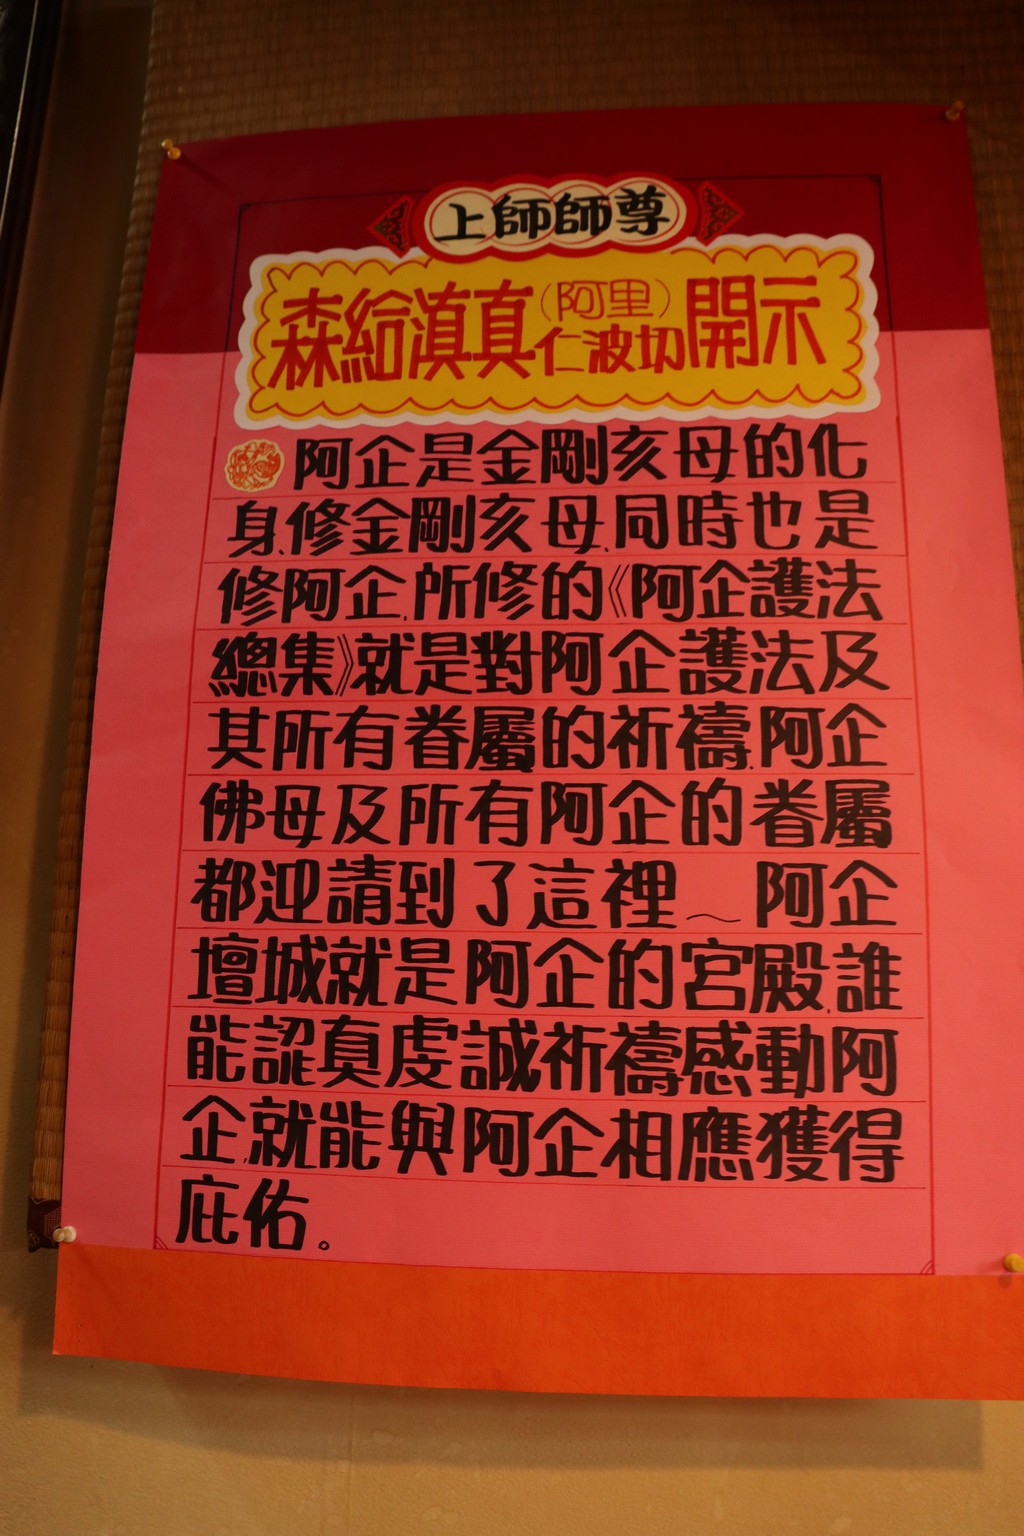 上師師尊
森給滇真(阿里)仁波切開示
阿企是金剛亥母的化
身,修金剛亥母,同時也是
修阿企,所修的《阿企護法
總集》就是對阿企護法及
其所有眷屬的祈禱,阿企
佛母及所有阿企的眷屬
都迎請到了這裡~阿企
壇城就是阿企的宮殿,誰
能認真虔誠祈禱感動阿
企,就能與阿企相應獲得
庇佑。